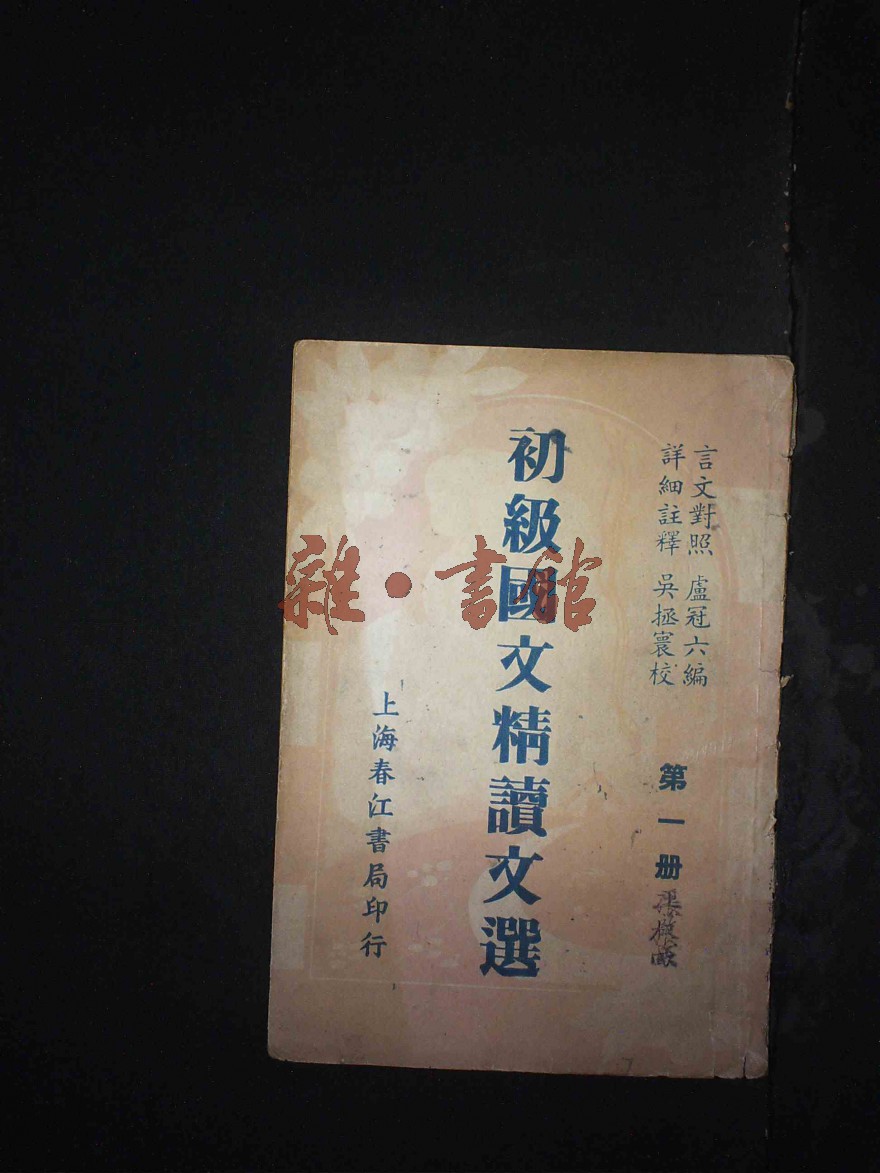 言文對照 盧冠六編
詳細註釋 吳拯寰校
第一册
初級國文精讀文選
上海春江書局印行
雜·書館